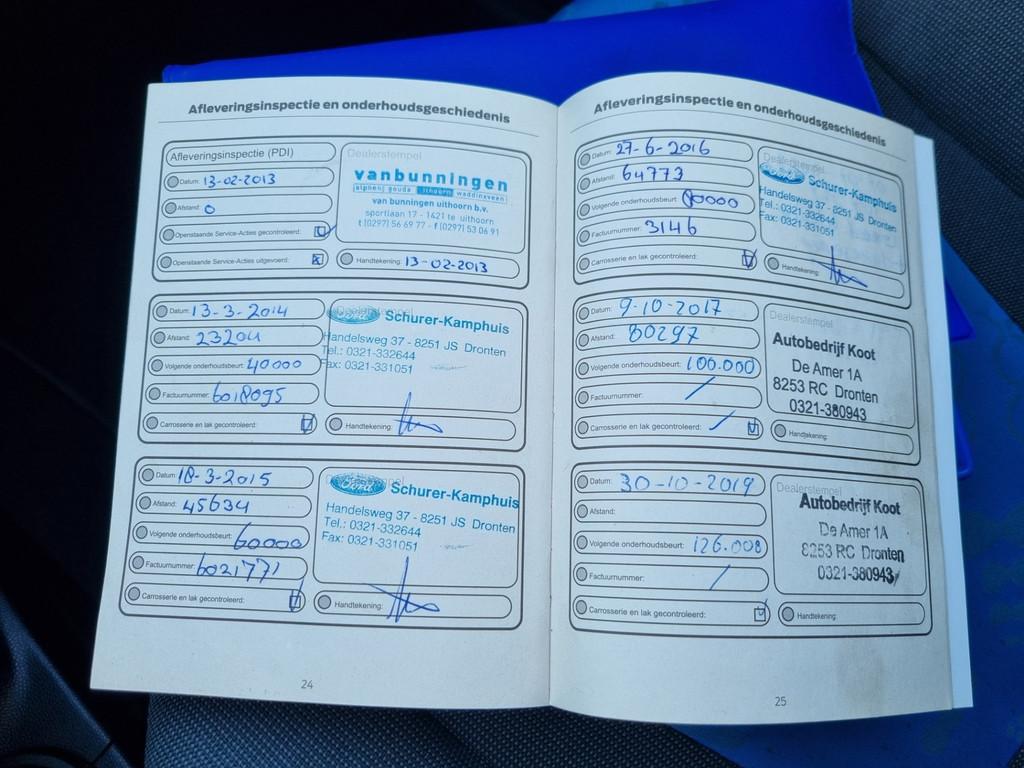 Afleveringsinspectie en onderhoudsgeschiedenis
Afleveringsinspectie (PDI)
Datum: 13-02-2013
Afstand: 0
Openstaande Service-Acties gecontroleerd:
Openstaande Service-Acties uitgevoerd:
Dealerstempel
vanbunningen
alphen gouda uithoorn waddinxveen
van bunningen uithoorn b.v.
sportlaan 17 - 1421 te uithoorn
t (0297) 56 69 77 - f (0297) 53 06 91
Handtekening: 13-02-2013
Datum: 13-3-2014
Afstand: 23204
Volgende onderhoudsbeurt: 40000
Factuurnummer: 6018095
Carrosserie en lak gecontroleerd:
Dealerstempel
Ford Schurer-Kamphuis
Handelsweg 37 - 8251 JS Dronten
Tel.: 0321-332644
Fax: 0321-331051
Handtekening:
Datum: 18-3-2015
Afstand: 45634
Volgende onderhoudsbeurt: 60000
Factuurnummer: 6021771
Carrosserie en lak gecontroleerd:
Dealerstempel
Ford Schurer-Kamphuis
Handelsweg 37 - 8251 JS Dronten
Tel.: 0321-332644
Fax: 0321-331051
Handtekening:
24
Afleveringsinspectie en onderhoudsgeschiedenis
Datum: 27-6-2016
Afstand: 64773
Volgende onderhoudsbeurt: 80000
Factuurnummer: 3146
Carrosserie en lak gecontroleerd:
Dealerstempel
Ford Schurer-Kamphuis
Handelsweg 37 - 8251 JS Dronten
Tel.: 0321-332644
Fax: 0321-331051
Handtekening:
Datum: 9-10-2017
Afstand: 80297
Volgende onderhoudsbeurt: 100.000
Factuurnummer: /
Carrosserie en lak gecontroleerd: /
Dealerstempel
Autobedrijf Koot
De Amer 1A
8253 RC Dronten
0321-380943
Handtekening:
Datum: 30-10-2019
Afstand:
Volgende onderhoudsbeurt: 126.008
Factuurnummer: /
Carrosserie en lak gecontroleerd:
Dealerstempel
Autobedrijf Koot
De Amer 1A
8253 RC Dronten
0321-380943
Handtekening:
25